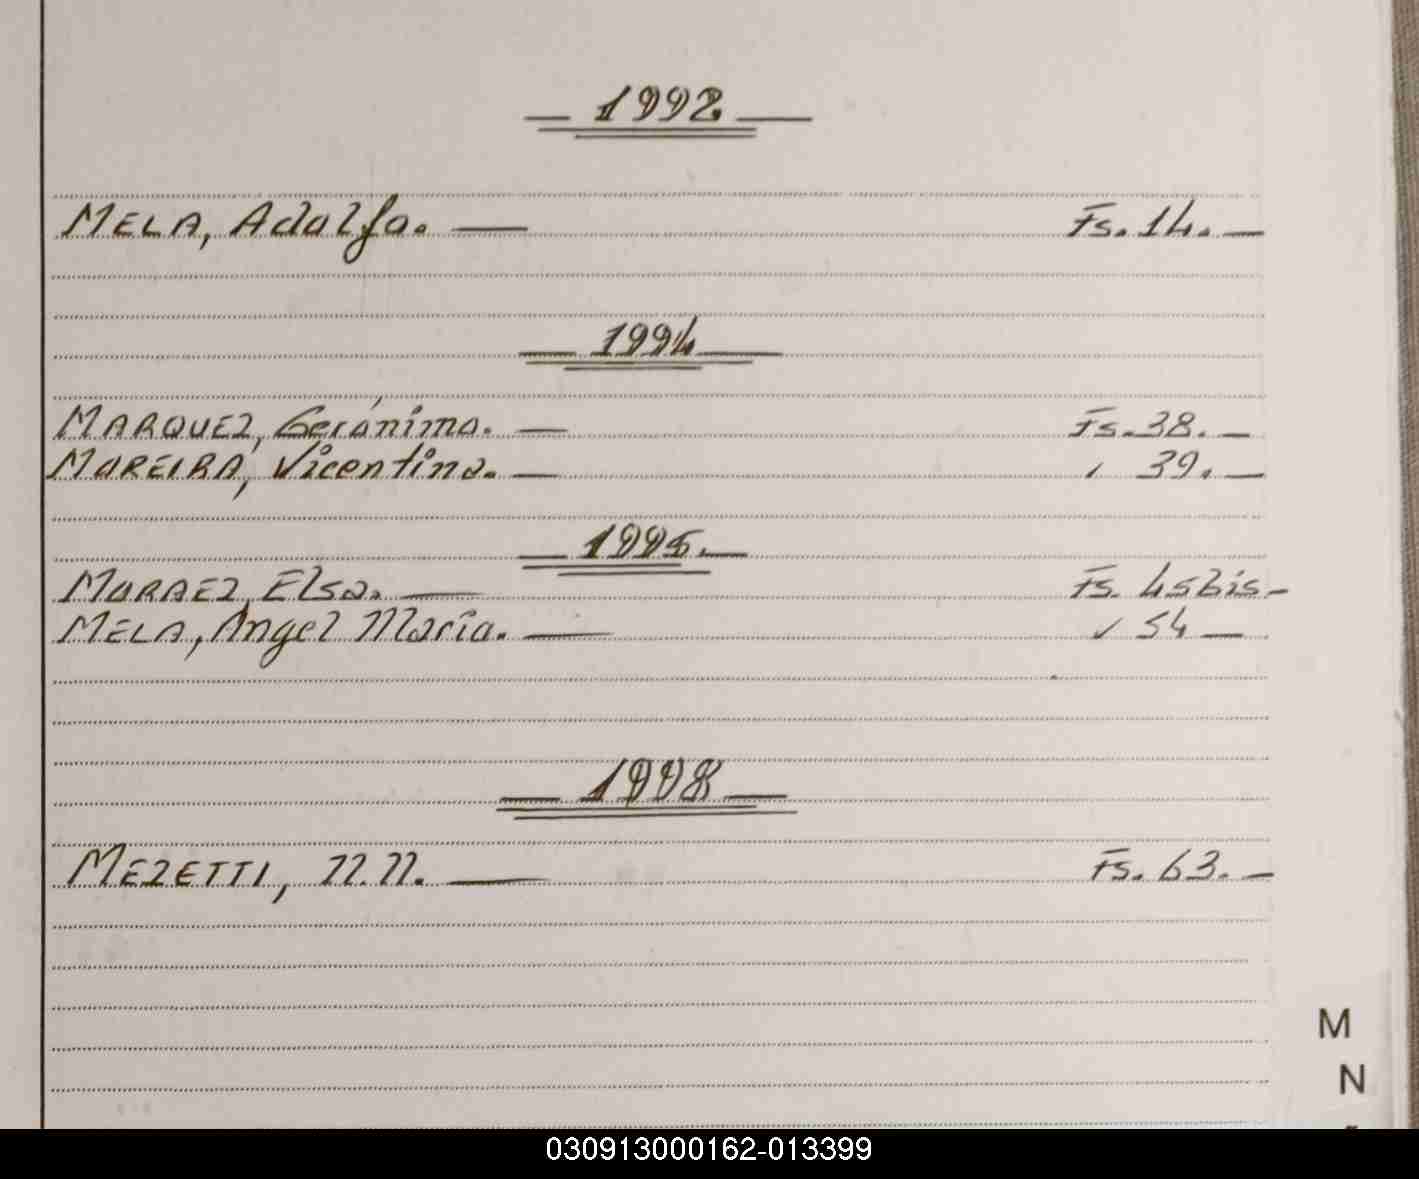 1992
MELA, Adolfo. Fs. 14.
1994
MARQUEZ, Gerónimo. Fs. 38.
MOREIRA, Vicentino. 39.
1995.
MORAEZ, Elsa. Fs. 45bis
MELA, Angel María. 54
1998
MEZETTI, N.N. Fs. 63.
M
N
030913000162-013399